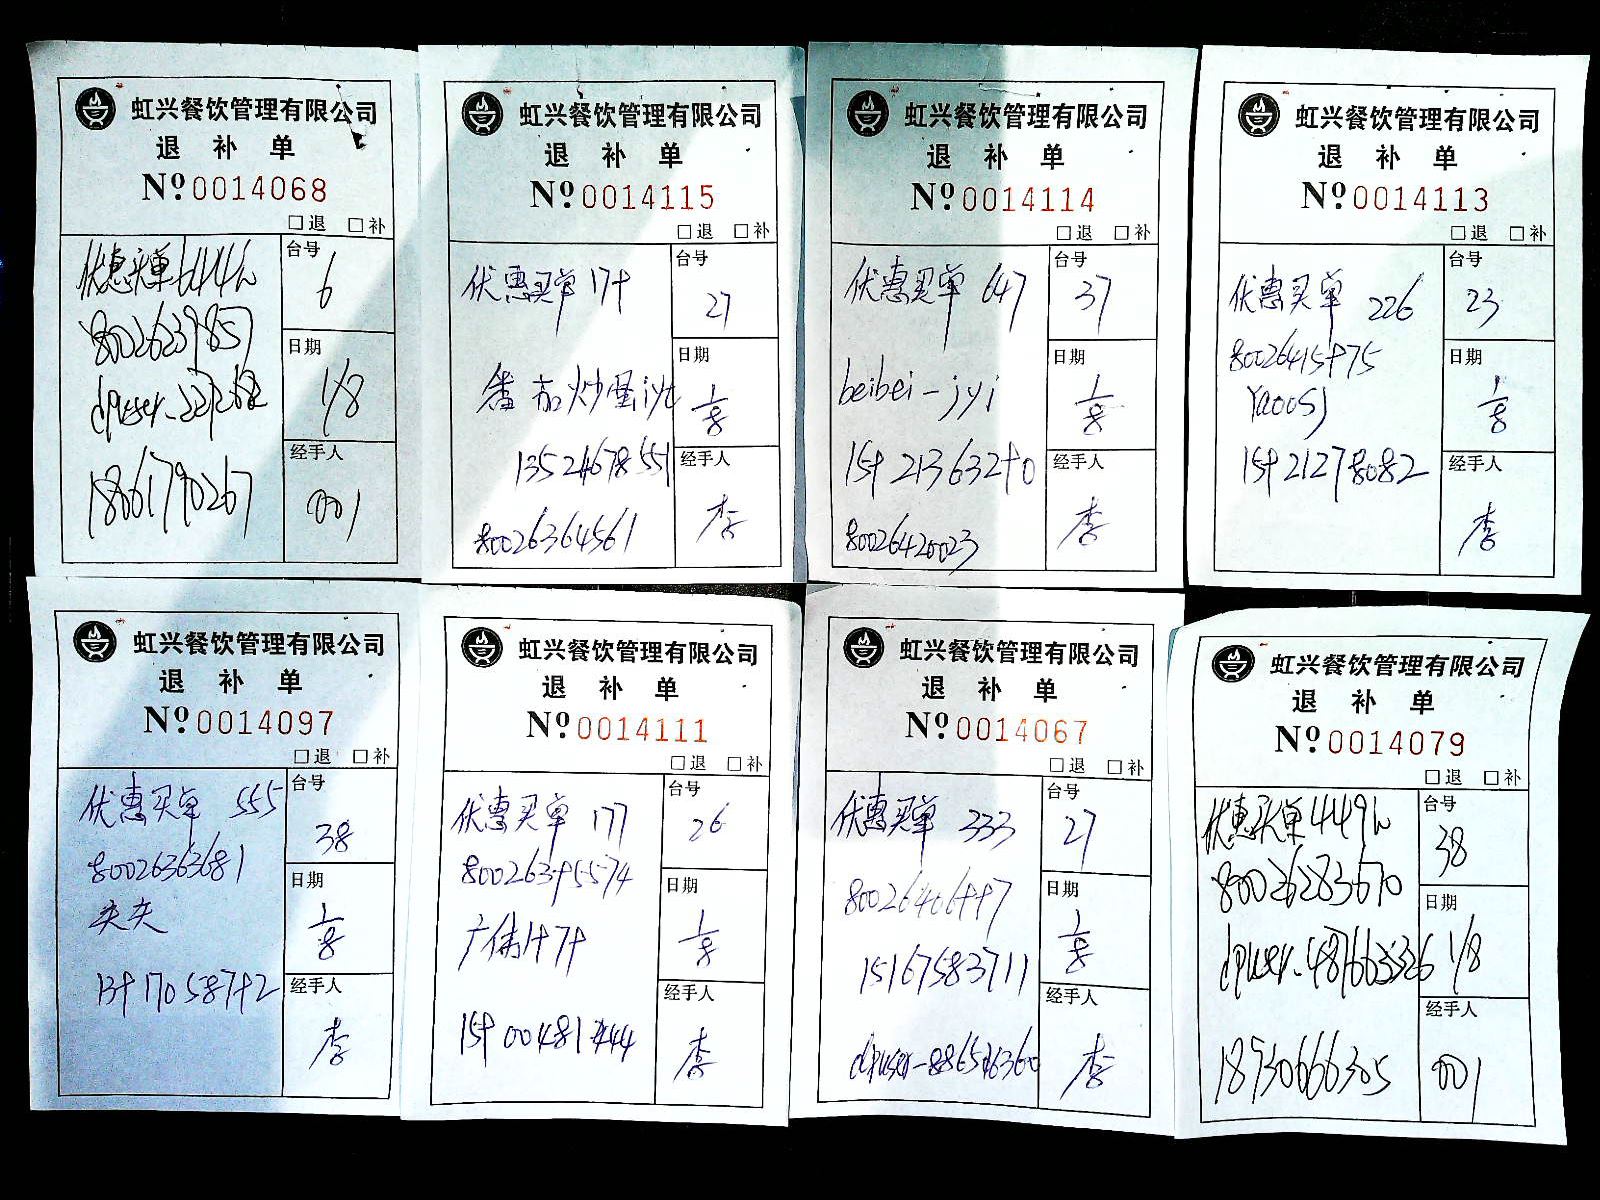 虹兴餐饮管理有限公司
退 补 单
Nº0014068
□退 □补
优惠买单
台号
6
80026239857
日期
1/8
18061790267
经手人
001
虹兴餐饮管理有限公司
退 补 单
Nº0014115
□退 □补
优惠买单 179
台号
27
番茄炒蛋iyt
日期
1/8
13524678551
80026364561
经手人
李
虹兴餐饮管理有限公司
退 补 单
Nº0014114
□退 □补
优惠买单 647
台号
37
beibei-jyi
日期
1/8
15921363290
80026420023
经手人
李
虹兴餐饮管理有限公司
退 补 单
Nº0014113
□退 □补
优惠买单 226
台号
23
80026415975
Yaoosj
日期
1/8
15921278082
经手人
李
虹兴餐饮管理有限公司
退 补 单
Nº0014097
□退 □补
优惠买单 555
台号
38
80026363681
夹夹
日期
1/8
13917058792
经手人
李
虹兴餐饮管理有限公司
退 补 单
Nº0014111
□退 □补
优惠买单 177
台号
26
80026395574
日期
1/8
经手人
李
虹兴餐饮管理有限公司
退 补 单
Nº0014067
□退 □补
优惠买单 333
台号
27
80026406997
日期
1/8
15167583711
经手人
李
虹兴餐饮管理有限公司
退 补 单
Nº0014079
□退 □补
优惠买单
台号
38
80026283670
日期
1/8
18930666305
经手人
001